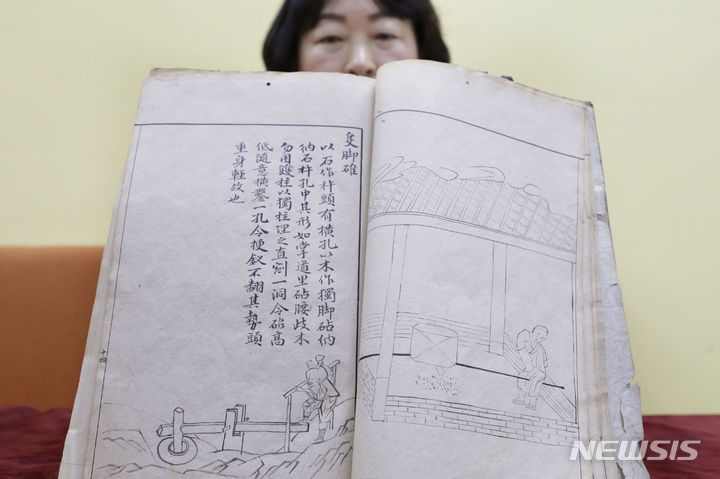 隻脚碓
以石作杵頭有橫孔以木作獨脚砧納
納石杵孔中其形如掌道里砧腰歧木
勿用雙柱以獨柱埋之直剜一洞令砧高
低隨意橫鑿一孔令梗釵不翻其勢頭
重身輕故也
十四
NEWSIS